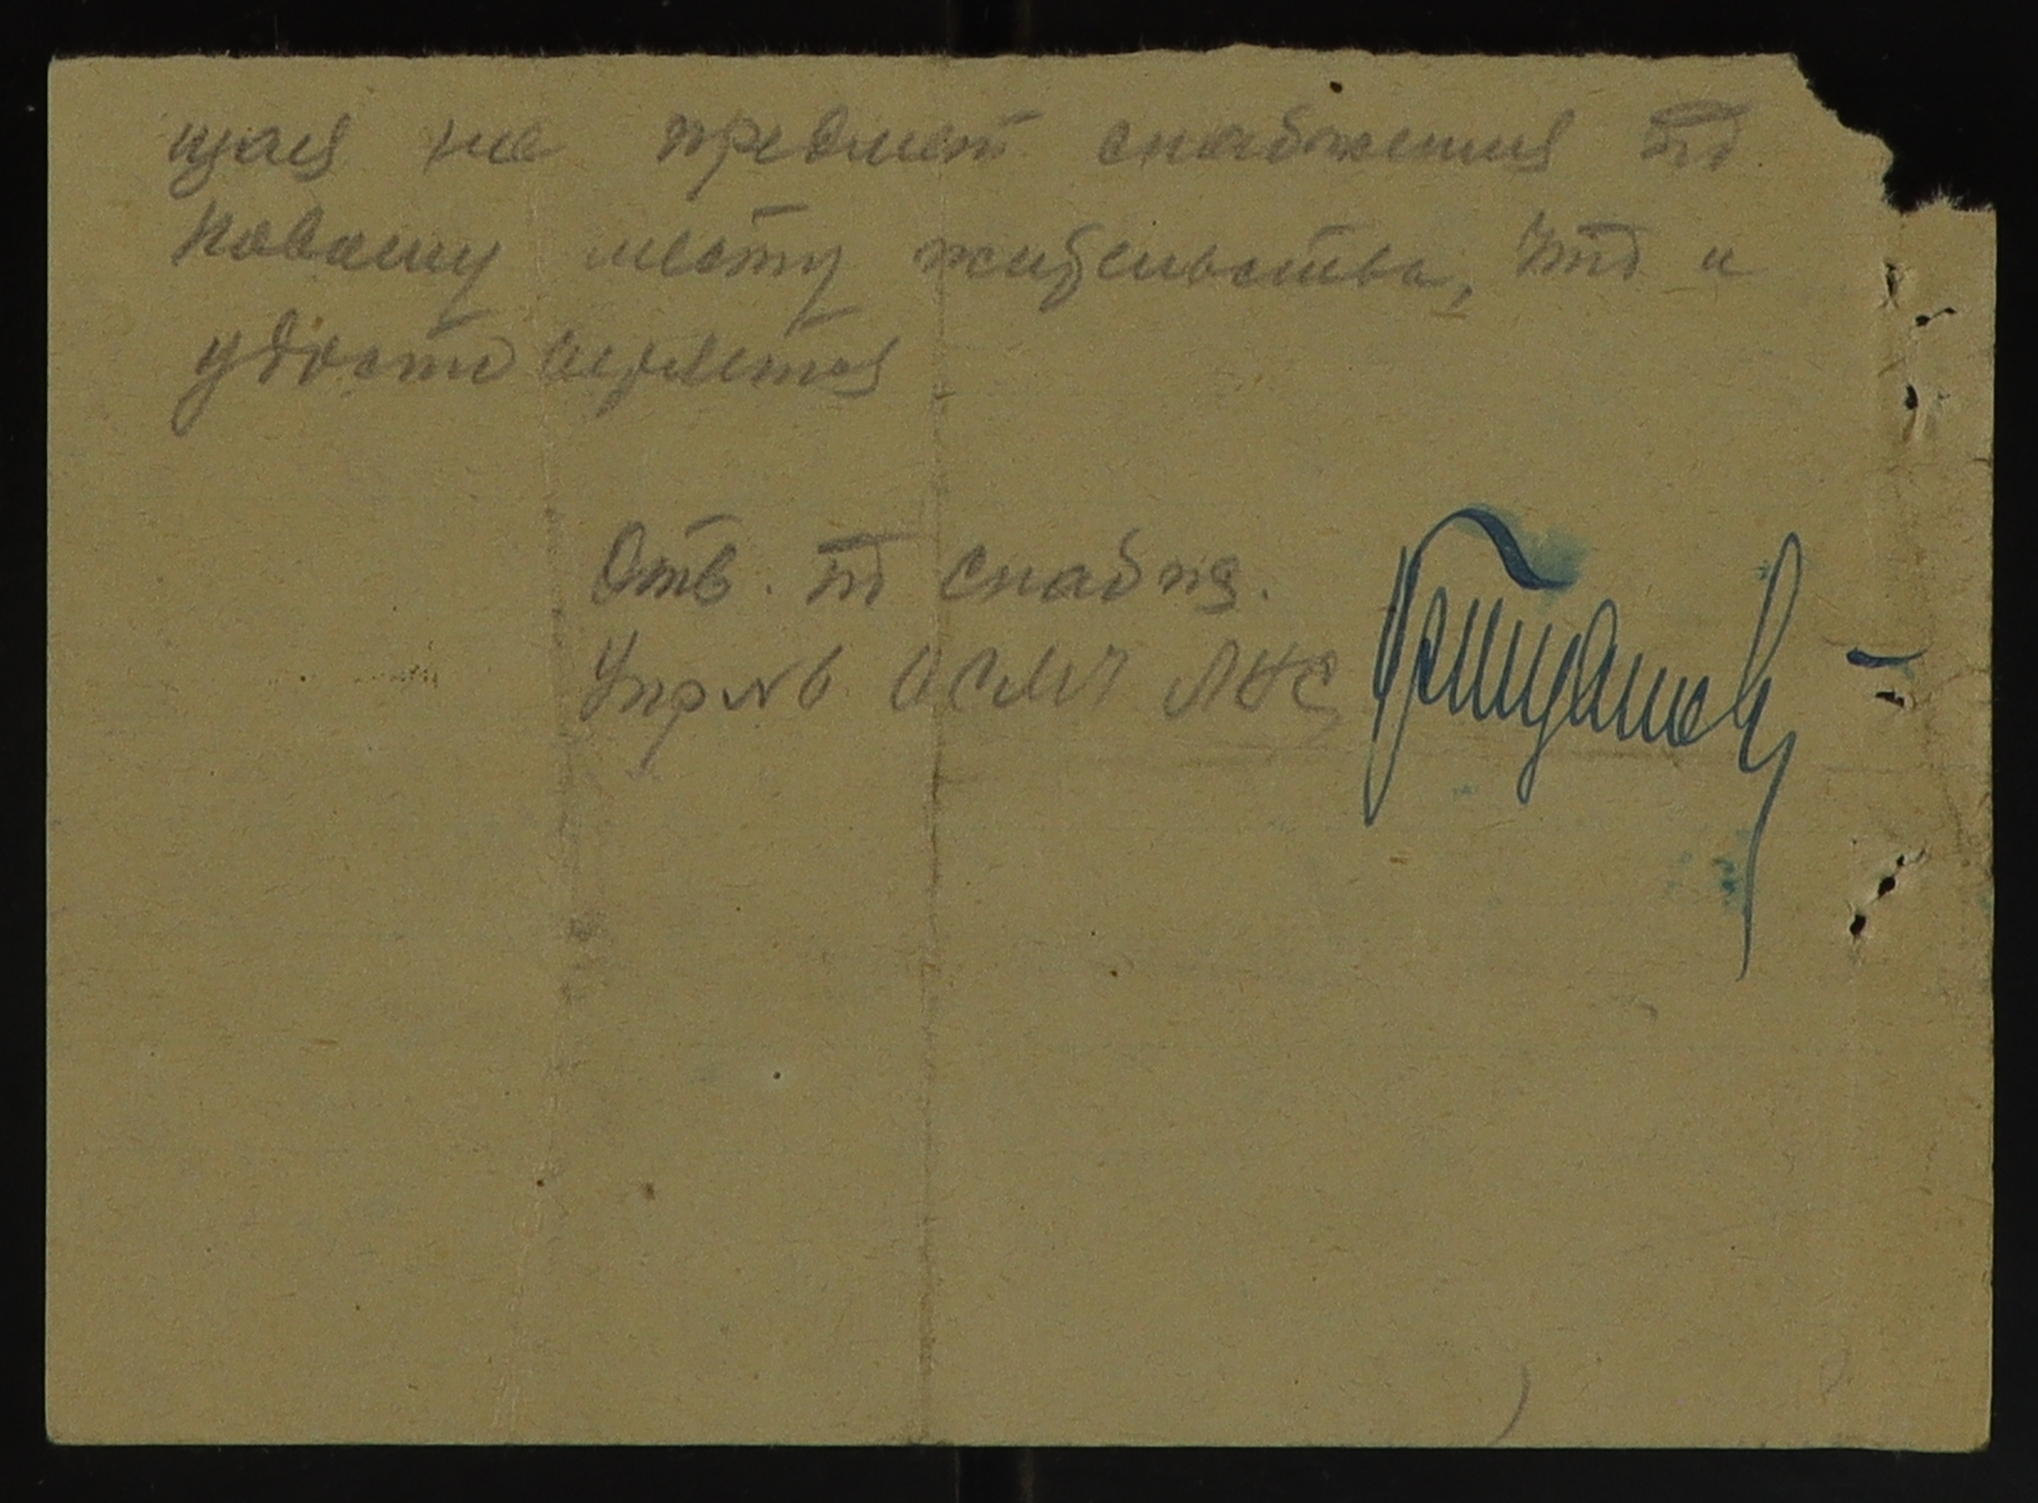 щая на предмет снабжения по
новому месту жительства, что и
удостоверяется
Отв. по снабж.
Упр №6 ОСМЧ